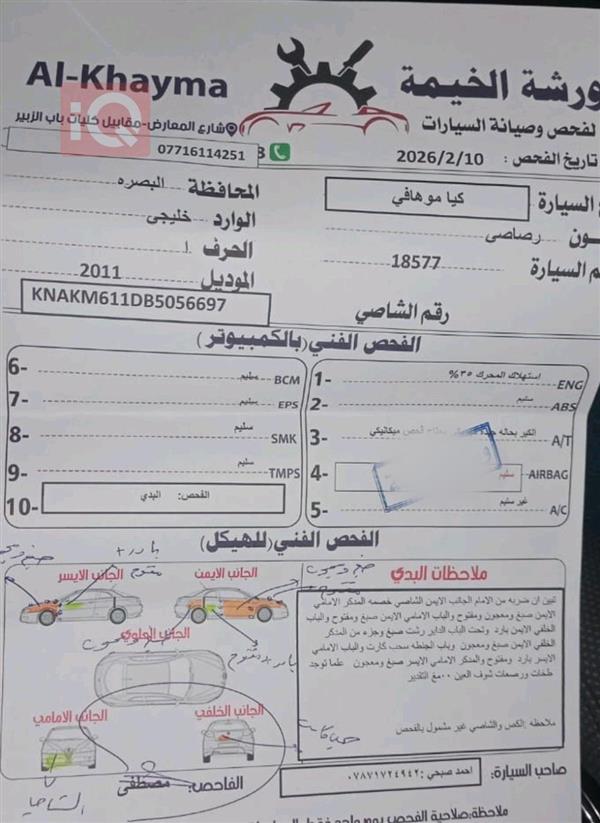 Al-Khayma
iQ
ورشة الخيمة
لفحص وصيانة السيارات
شارع المعارض-مقابيل كليات باب الزبير
07716114251
تاريخ الفحص : 2026/2/10
السيارة
كيا موهافي
المحافظة البصره
ـون رصاصي
الوارد خليجي
ـم السيارة 18577
الحرف ا
الموديل 2011
رقم الشاصي
KNAKM611DB5056697
الفحص الفني(بالكمبيوتر)
1- استهلاك المحرك ٣٥% ENG
2- سليم ABS
3- الكير بحاله ميكانيكي A/T
4- سليم AIRBAG
5- غير سليم A/C
6- سليم BCM
7- سليم EPS
8- سليم SMK
9- سليم TMPS
10- الفحص: البدي
الفحص الفني(للهيكل)
ملاحظات البدي
تبين ان ضربه من الامام الجانب الايمن الشاصي خصمه المدكر الامامي
الايمن صبغ ومعجون ومفتوح والباب الامامي الايمن صبغ ومفتوح والباب
الخلفي الايمن بارد وتحت الباب الداير رشت صبغ وجزء من المدكر
الايمن صبغ ومعجون وباب الجنطه سحب كارت والباب الامامي
الايسر بارد ومفتوح والمدكر الامامي الايسر صبغ ومعجون علما توجد
طخات ورصعات شوف العين ٠٠مع التقدير
ملاحظه :الكص والشاصي غير مشمول بالفحص
الجانب الايمن
الجانب الايسر
الجانب العلوي
الجانب الخلفي
الجانب الامامي
بارد+
مفتوح
بارد+مفتوح
الشاصي
صاحب السيارة: احمد صبحي :٠٧٨٧١٧٢٤٩٤٢
الفاحص: مصطفى
ملاحظة:صلاحية الفحص يوم واحد فقط